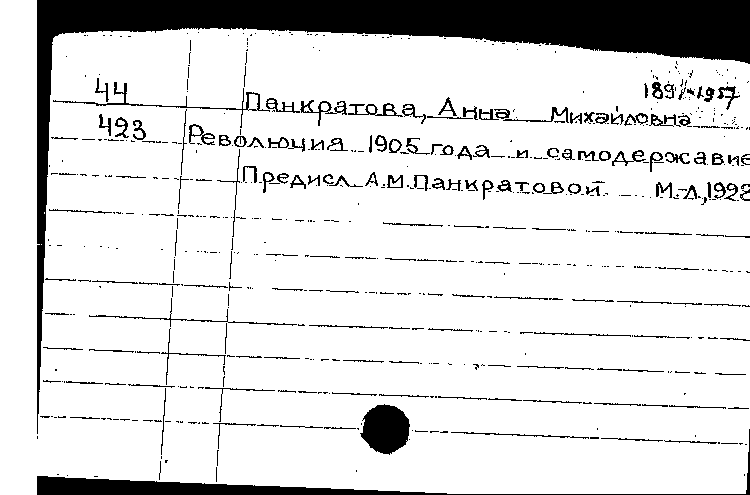 44 1897-1957
Панкратова, Анна Михайловна
423 Революция 1905 года и самодержавие
Предисл. А.М.Панкратовой. М.-Л., 1928